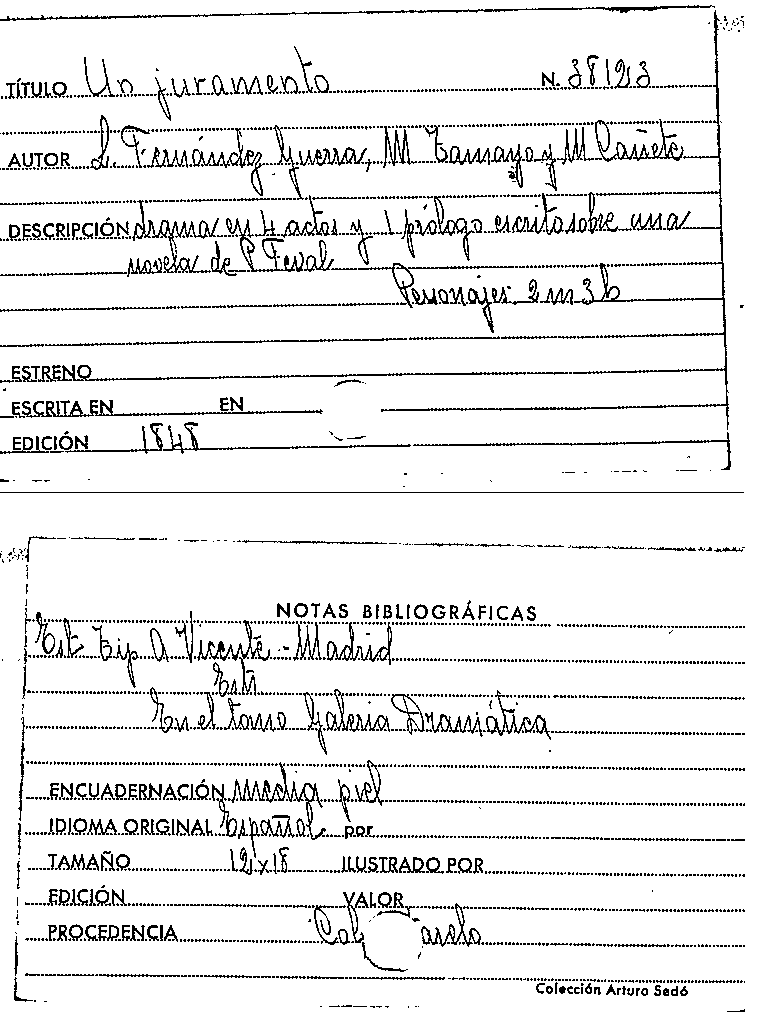 TÍTULO Un juramento N. 38123
AUTOR L. Fernández Guerra, M Tamayo y M Cañete
DESCRIPCIÓN drama en 4 actos y 1 prólogo escrito sobre una
novela de P Feval
Personajes: 2 m 3 h
ESTRENO
ESCRITA EN EN
EDICIÓN 1848
NOTAS BIBLIOGRÁFICAS
Est Tip A Vicente - Madrid
En el tomo Galeria Dramática
ENCUADERNACIÓN media piel
IDIOMA ORIGINAL Español por
TAMAÑO 12x18 ILUSTRADO POR
EDICIÓN VALOR
PROCEDENCIA
Colección Arturo Sedó